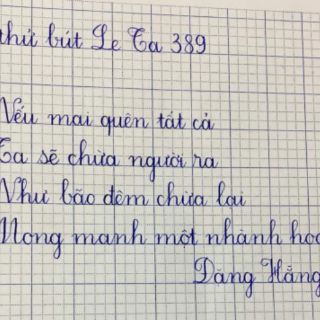 thử bút Le Ta 389
Nếu mai quên tất cả
Ta sẽ chừa người ra
Như bão đêm chừa lại
Mong manh một nhành hoa
Dăng Hằng